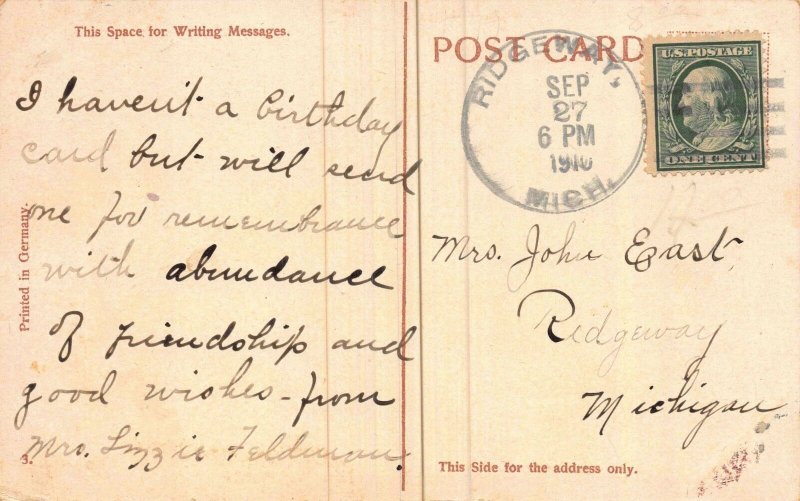 This Space for Writing Messages.
I haven't a birthday
card but will send
one for remembrance
with abundance
of friendship and
good wishes - from
Mrs. Lizzie Feldman.
Printed in Germany.
3.
POST CARD
RIDGEWAY,
SEP
27
6 PM
1910
MICH.
U.S. POSTAGE
ONE CENT
Mrs. John East,
Ridgeway
Michigan
This Side for the address only.